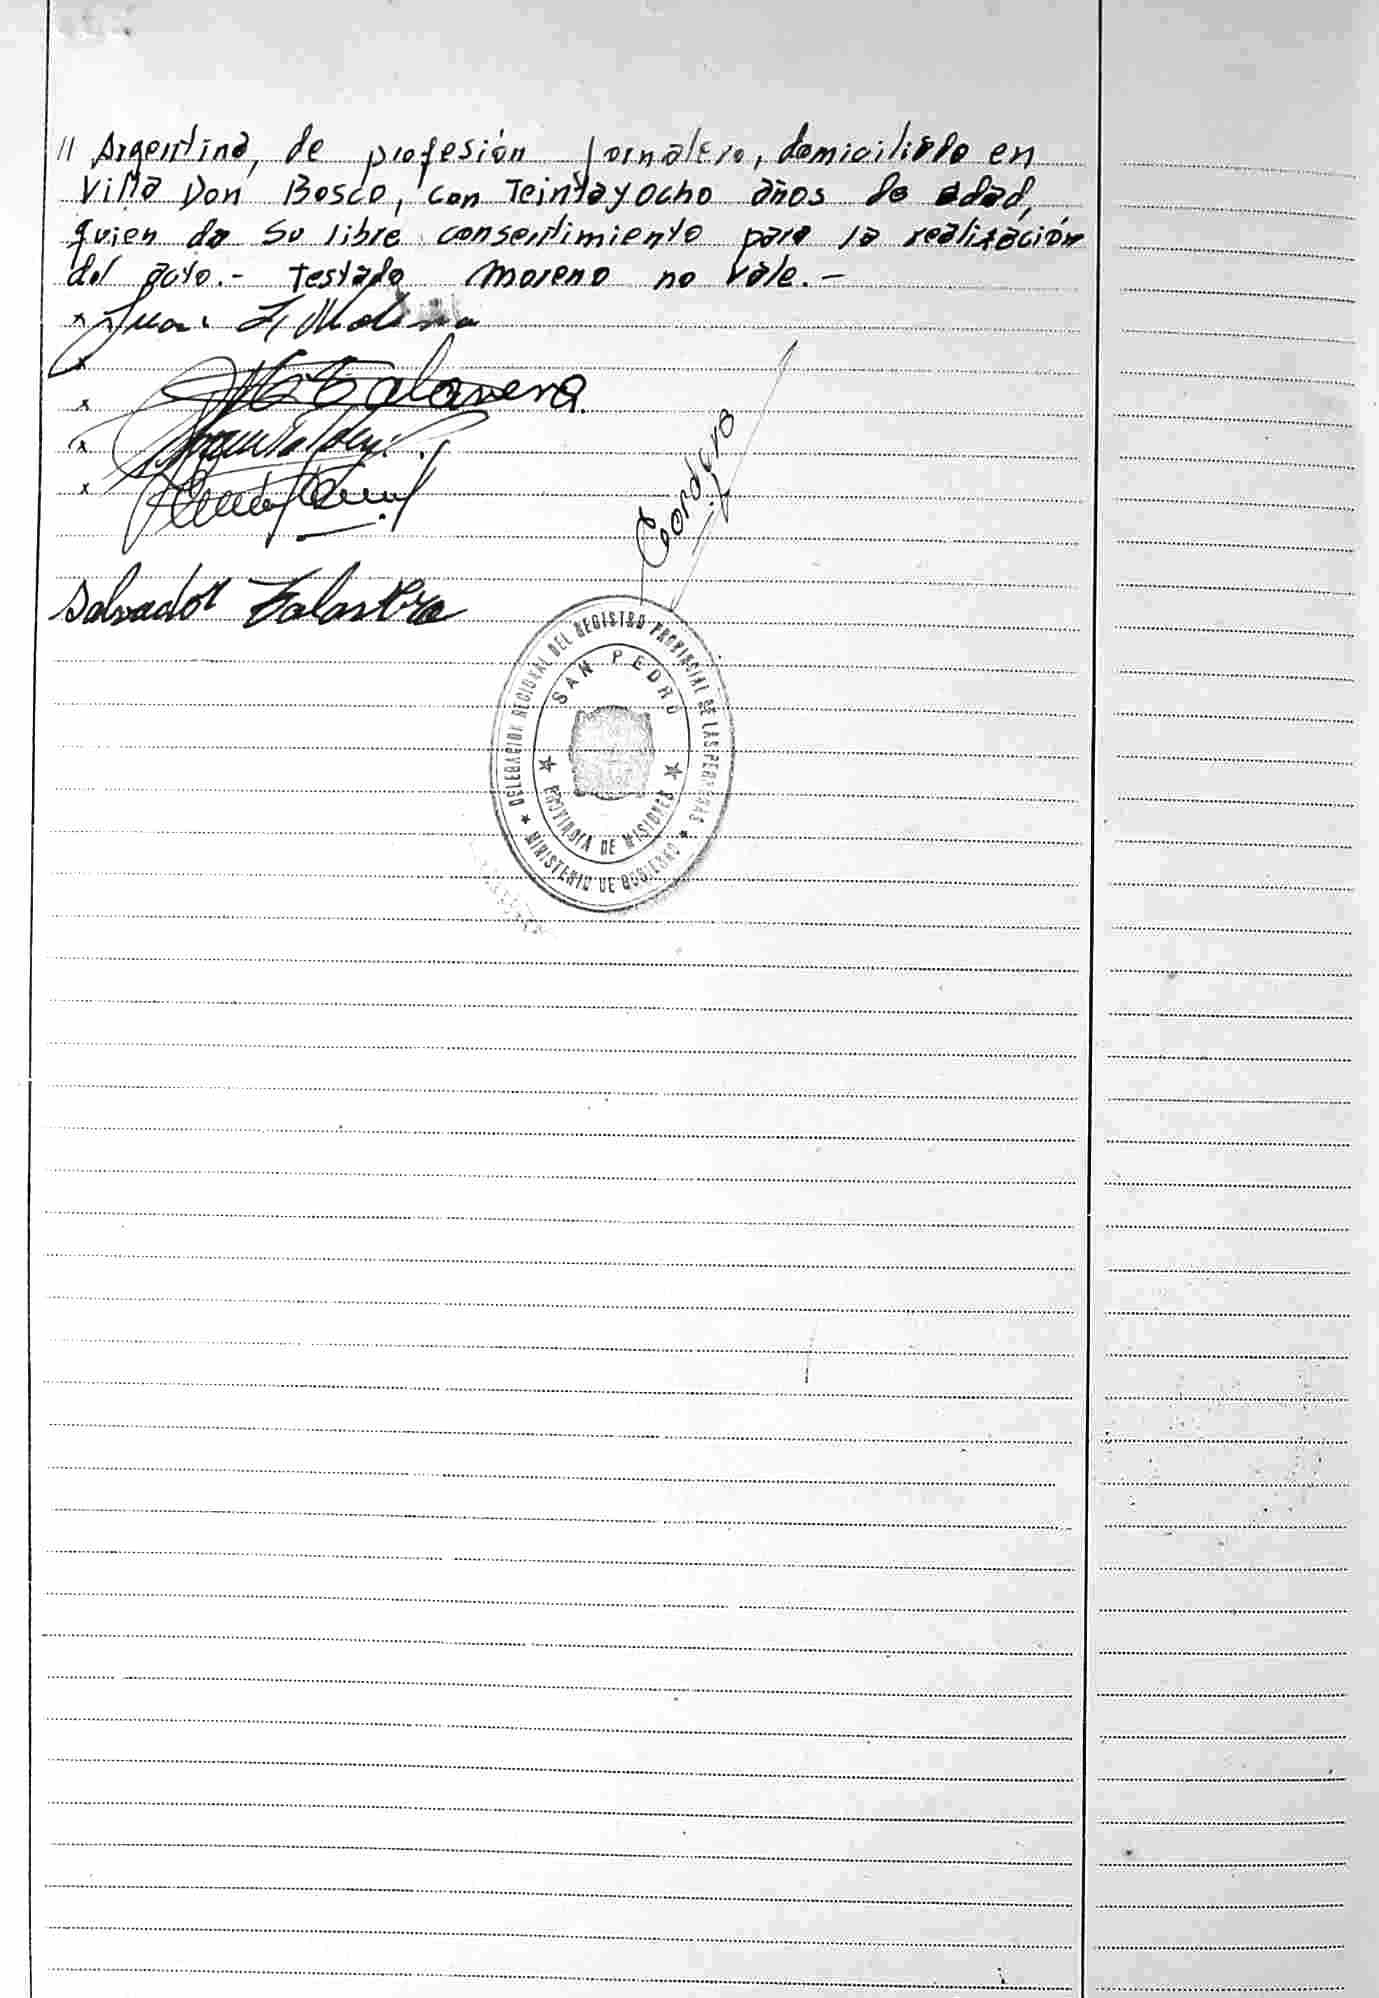 // Argentina, de profesión jornalero, domiciliado en
Villa Don Bosco, con Teintayocho años de edad,
quien da su libre consentimiento para la realización
del acto.- Testado Moreno no vale.-
x Juan
x
x
x
x
Cordero
Salvador
DELEGACION REGIONAL DEL REGISTRO PROVINCIAL DE LAS PERSONAS
SAN PEDRO
PROVINCIA DE MISIONES
MINISTERIO DE GOBIERNO